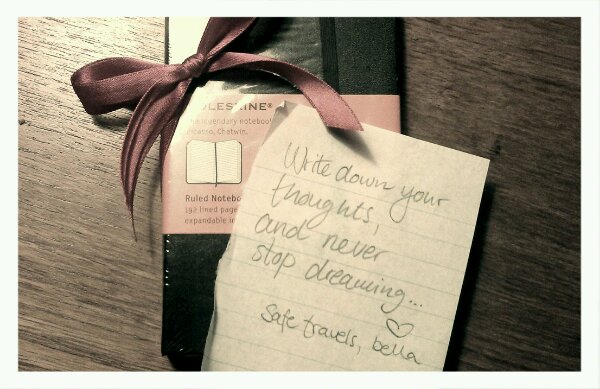 OLESKINE®
legendary notebook
Picasso, Chatwin.
Ruled Notebo
192 lined page
expandable in
Write down your
thoughts,
and never
stop dreaming...
Safe travels, bella